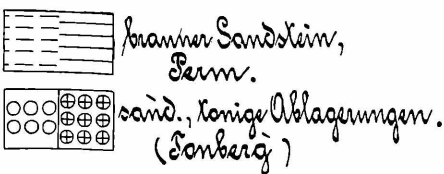 brauner Sandstein,
Perm.
sand., tonige Ablagerungen.
(Tonberg)